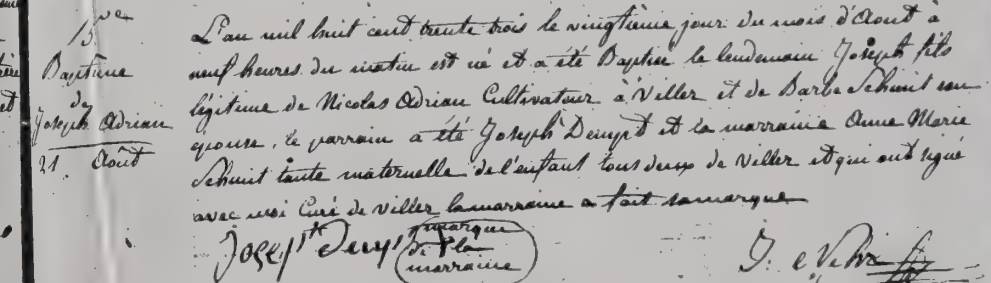 15.ve
Baptême
de
Joseph Adrian
21 Août
L'an mil huit cent trente trois le vingtième jour du mois d'Aout à
neuf heures du matin est né et a été Baptisé le lendemain Joseph fils
légitime de Nicolas Adrian Cultivateur à Viller et de Barbe Schmit son
épouse, le parrain a été Joseph Dempt et la marraine Anne Marie
Schmit tante maternelle de l'enfant tous deux de Viller et qui ont signé
avec moi Curé de Viller la marraine a fait sa marque
Joseph
marque
de la
marraine